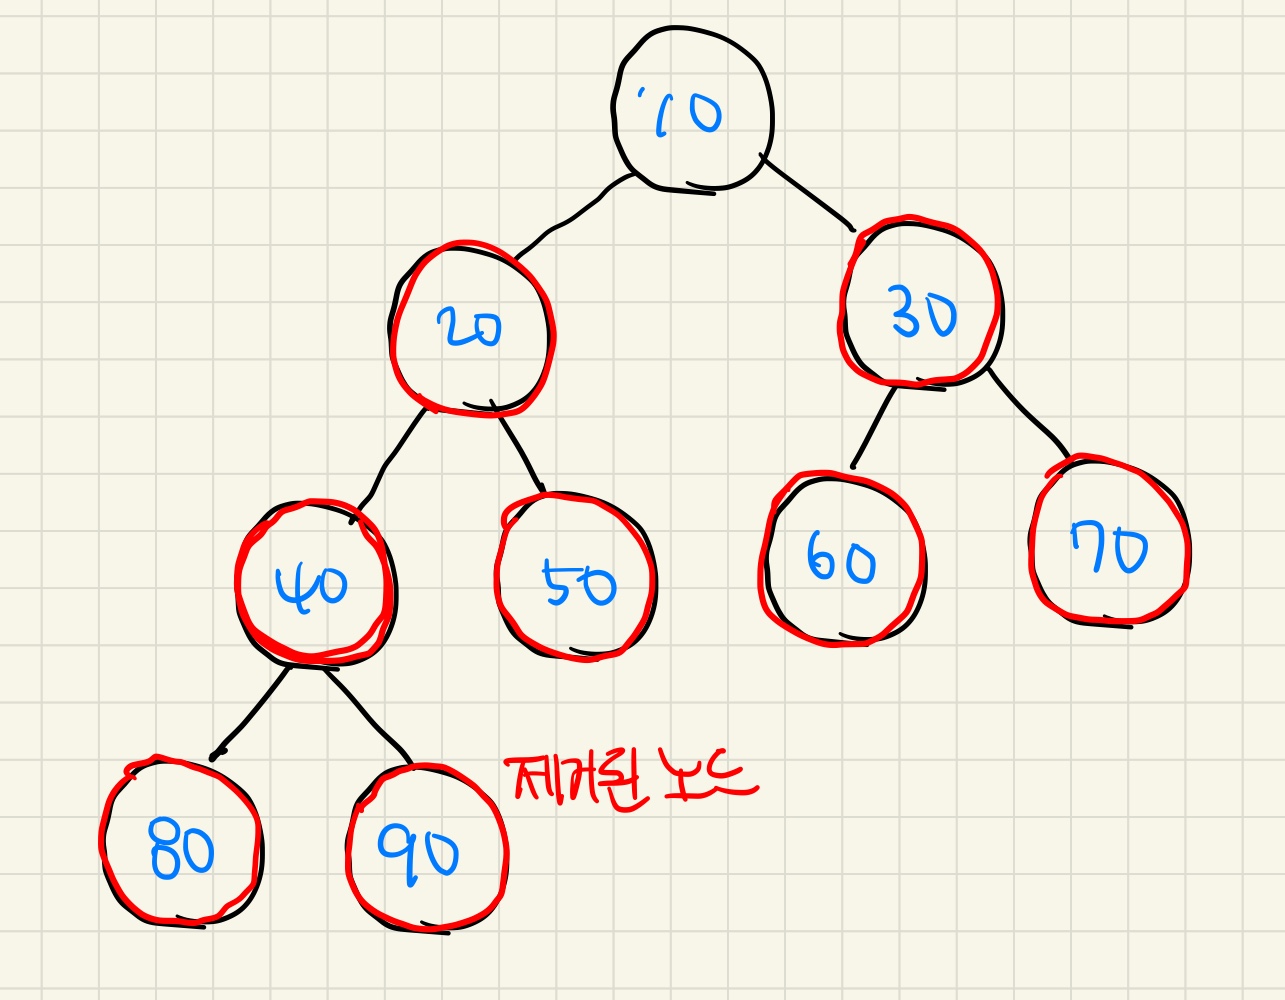 10
20
30
40
50
60
70
80
90
제거된 노드